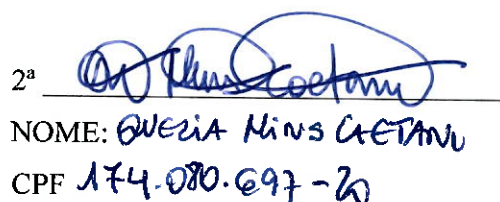 2ª
NOME: QUEZIA MINS CAETANO
CPF 174.080.697-20